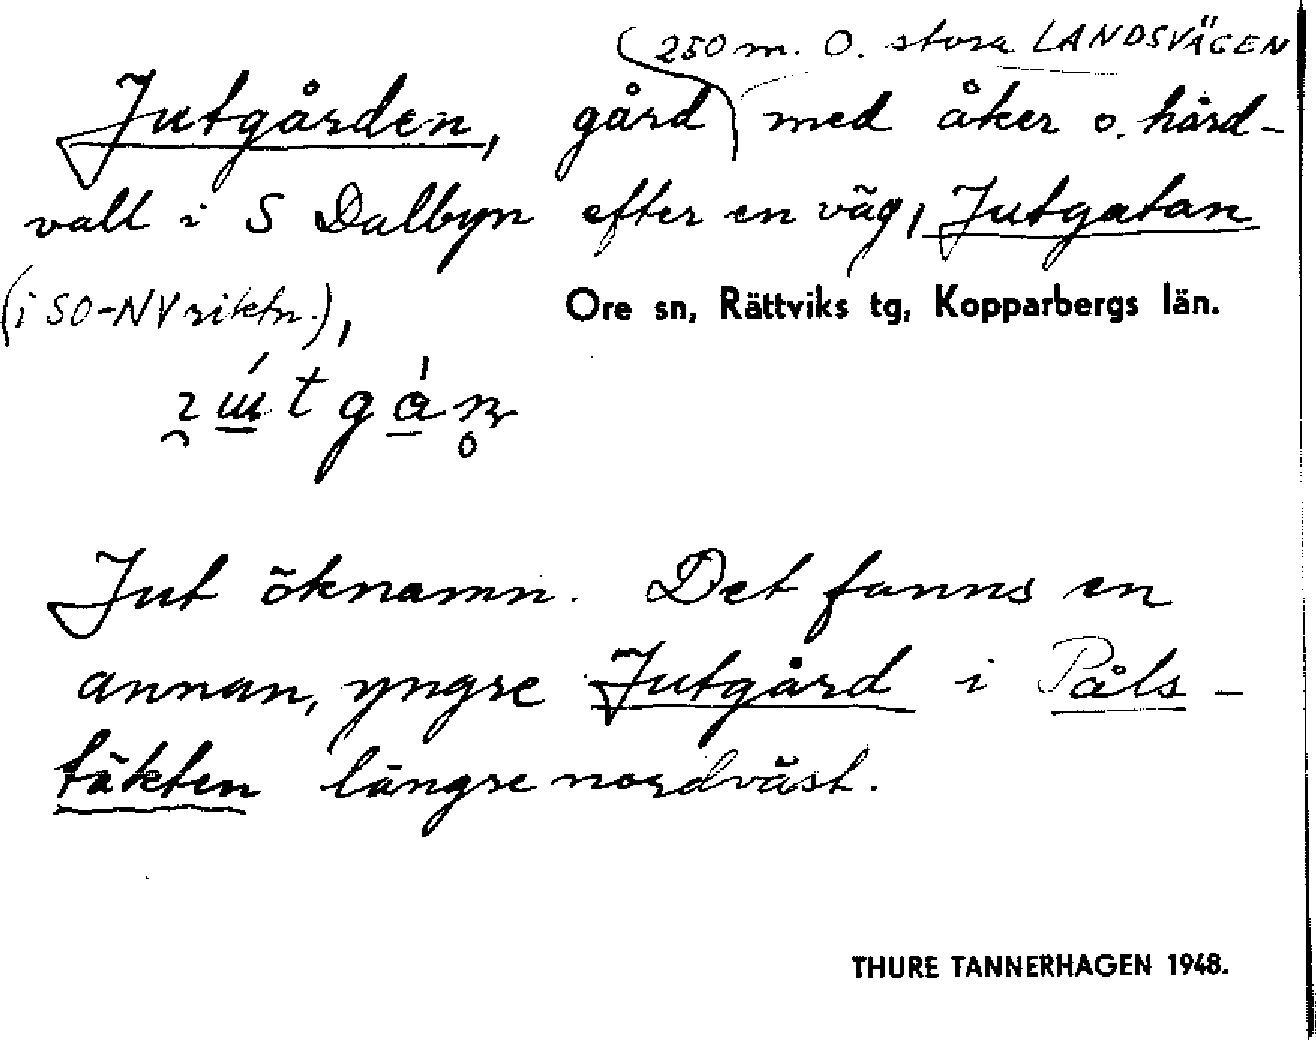 250 m. O. stora LANDSVÄGEN
Jutgården, gård med åker o. hård-
vall i S Dalbyn efter en väg, Jutgatan
(i SO-NV riktn.),
Ore sn, Rättviks tg, Kopparbergs län.
Jut öknamn. Det fanns en
annan, yngre Jutgård i Påls-
täkten längre nordväst.
THURE TANNERHAGEN 1948.